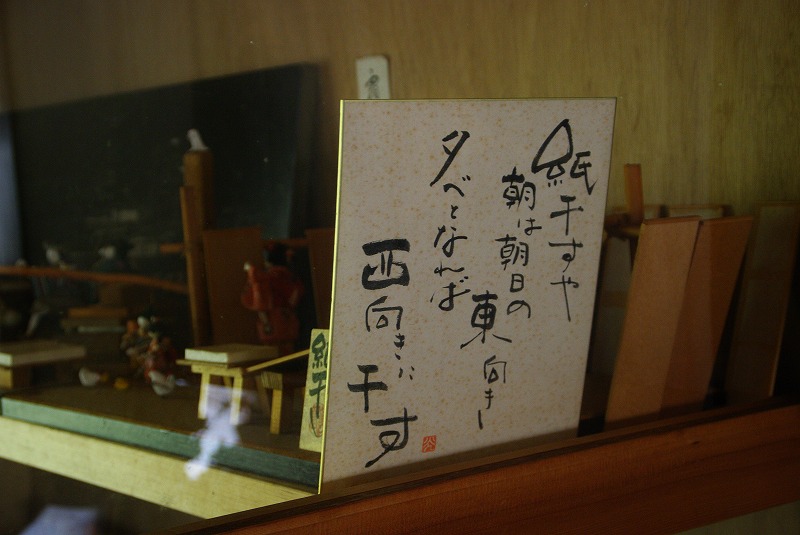 紙干すや
朝は朝日の
東向き
夕べとなれば
西向きに
干す
紙干